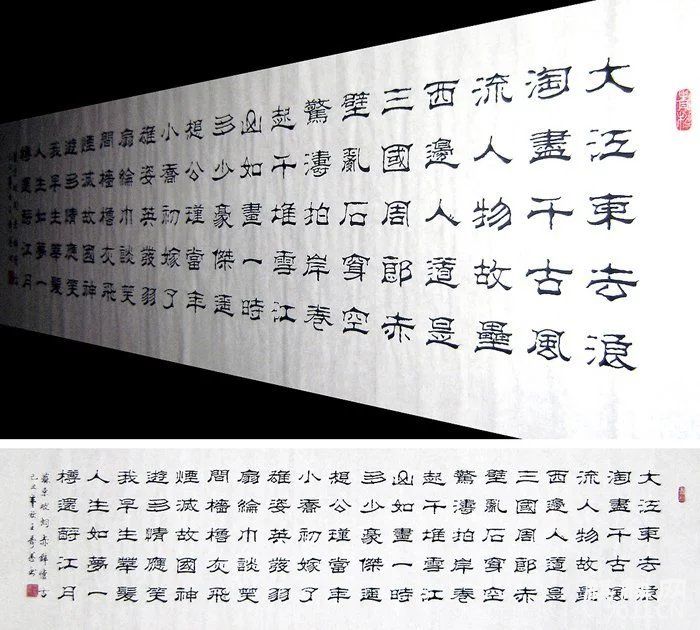 大江東去浪
淘盡千古風
流人物故壘
西邊人道是
三國周郎赤
壁亂石穿空
驚濤拍岸卷
起千堆雪江
山如畫一時
多少豪傑遙
想公瑾當年
小喬初嫁了
雄姿英發羽
扇綸巾談笑
間檣櫓灰飛
煙滅故國神
遊多情應笑
我早生華髮
人生如夢一
樽還酹江月
大江東去浪
淘盡千古風
流人物故壘
西邊人道是
三國周郎赤
壁亂石穿空
驚濤拍岸卷
起千堆雪江
山如畫一時
多少豪傑遙
想公瑾當年
小喬初嫁了
雄姿英發羽
扇綸巾談笑
間檣櫓灰飛
煙滅故國神
遊多情應笑
我早生華髮
人生如夢一
樽還酹江月
蘇東坡詞赤壁懷古